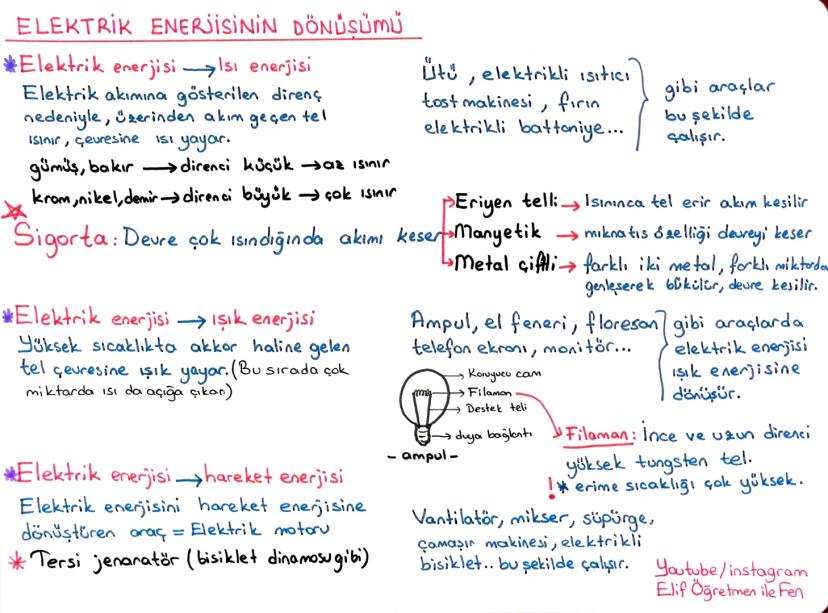 ELEKTRİK ENERJİSİNİN DÖNÜŞÜMÜ
*Elektrik enerjisi → Isı enerjisi
Elektrik akımına gösterilen direnç
nedeniyle, üzerinden akım geçen tel
ısınır, çevresine ısı yayar.
gümüş, bakır → direnci küçük → az ısınır
krom, nikel, demir → direnci büyük → çok ısınır
Ütü, elektrikli ısıtıcı
tost makinesi, fırın
elektrikli battaniye...
gibi araçlar
bu şekilde
çalışır.
Sigorta: Devre çok ısındığında akımı keser
Eriyen telli → Isınınca tel erir akım kesilir
Manyetik → mıknatıs özelliği devreyi keser
Metal çiftli → farklı iki metal, farklı miktarda
genleşerek bükülür, devre kesilir.
*Elektrik enerjisi → ışık enerjisi
Yüksek sıcaklıkta akkor haline gelen
tel çevresine ışık yayar. (Bu sırada çok
miktarda ısı da açığa çıkar.)
Ampul, el feneri, floresan
telefon ekranı, monitör...
gibi araçlarda
elektrik enerjisi
ışık enerjisine
dönüşür.
Koruyucu cam
Filaman
Destek teli
duya bağlantı
- ampul -
Filaman: İnce ve uzun direnci
yüksek tungsten tel.
! * erime sıcaklığı çok yüksek.
*Elektrik enerjisi → hareket enerjisi
Elektrik enerjisini hareket enerjisine
dönüştüren araç = Elektrik motoru
* Tersi jenaratör (bisiklet dinamosu gibi)
Vantilatör, mikser, süpürge,
çamaşır makinesi, elektrikli
bisiklet.. bu şekilde çalışır.
Youtube/instagram
Elif Öğretmen ile Fen